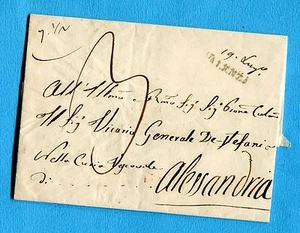 19. Lug.
VALENZA
All'Illmo e Rmo Sig. Sig.
Il Sig. Vicario Generale De-Stefani
Nella Curia Vescovile
di . . . . . . . . Alessandria